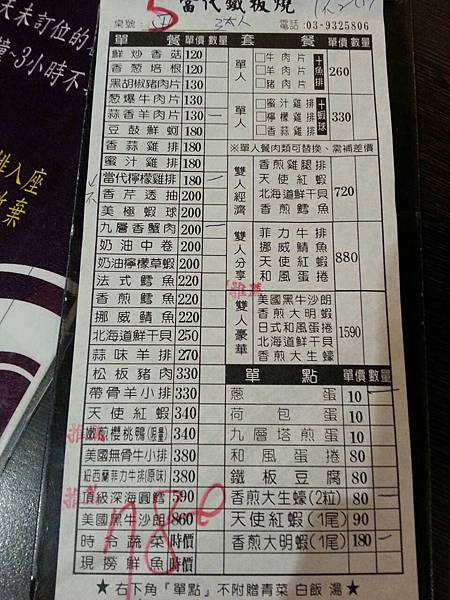 天未訂位的
3小時不
入座
棄
5
當代鐵板燒
桌號
3大人
電話:03-9325806
單餐 單價 數量
鮮炒香菇 120
香蔥培根 120
黑胡椒豬肉片 130
蔥爆牛肉片 130
蒜香羊肉片 130 一
豆鼓鮮蚵 180
香蒜雞排 180
蜜汁雞排 180
當代檸檬雞排 180 一
香芹透抽 200
美極蝦球 200
九層香蟹肉 200 一
奶油中卷 200
奶油檸檬草蝦 200
法式鱈魚 220
香煎鱈魚 220
挪威鯖魚 220
北海道鮮干貝 250
蒜味羊排 270
松板豬肉 330
帶骨羊小排 330
天使紅蝦 340
推薦
嫩煎櫻桃鴨(限量) 340
美國無骨牛小排 380
紐西蘭菲力牛排(原味) 380
頂級深海圓鱈 590
美國黑牛沙朗 860
時令蔬菜 時價
現撈鮮魚 時價
套餐 單價 數量
單人 □牛肉片 □羊肉片 □豬肉片 +魚排 260
單人 □蜜汁雞排 □檸檬雞排 □香蒜雞排 +蝦球 330
※單人餐肉類可替換、需補差價
雙人經濟 香煎雞腿排 天使紅蝦 北海道鮮干貝 香煎鱈魚 720
雙人分享 菲力牛排 挪威鯖魚 天使紅蝦 和風蛋捲 880
推薦
雙人豪華 美國黑牛沙朗 香煎大明蝦 日式和風蛋捲 北海道鮮干貝 香煎大生蠔 1590
單點 單價 數量
蔥蛋 10 一
荷包蛋 10
九層塔煎蛋 10
和風蛋捲 80
鐵板豆腐 80
香煎大生蠔(2粒) 80 一
天使紅蝦(1尾) 90
香煎大明蝦(1尾) 180 一
780
★右下角「單點」不附贈青菜 白飯 湯★